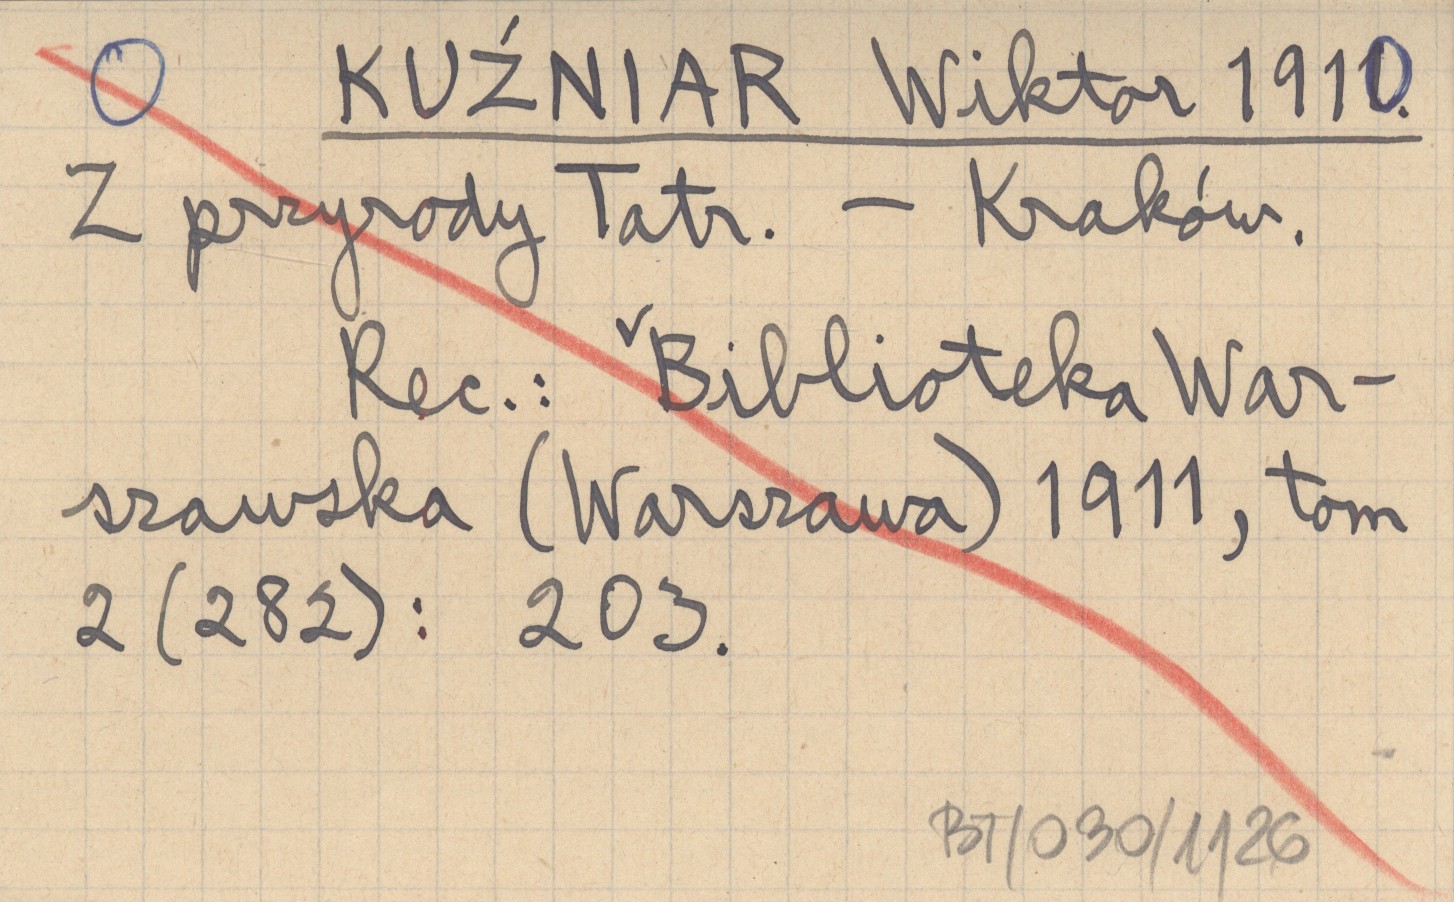 KUŹNIAR Wiktor 1910.
Z przyrody Tatr. — Kraków.
Rec.: Biblioteka War-
szawska (Warszawa) 1911, tom
2 (282): 203.
BT/030/1126